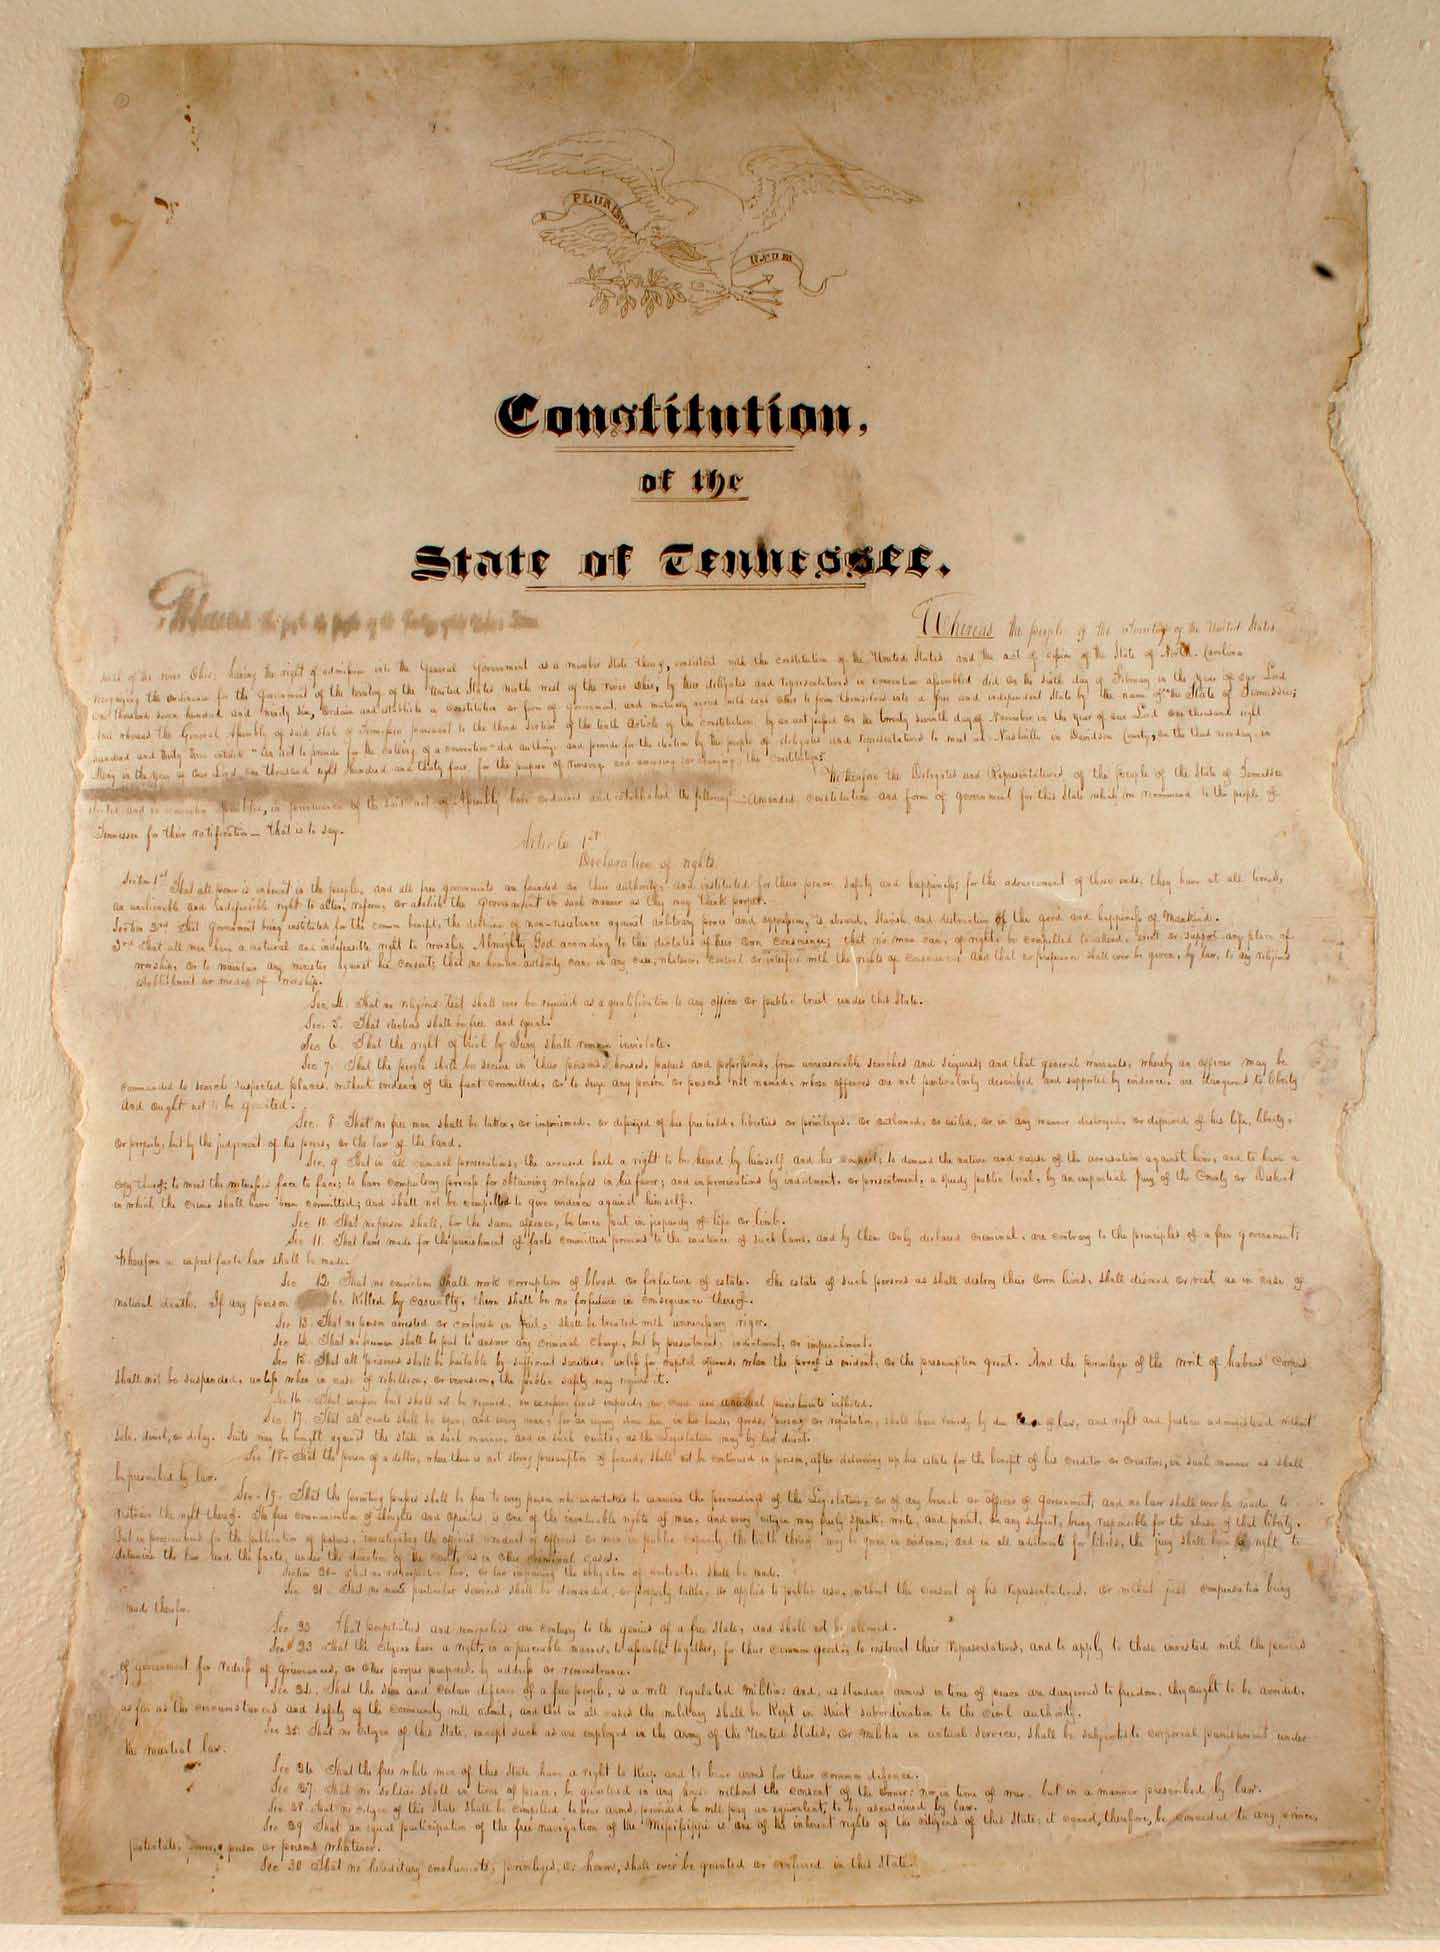 E PLURIBUS
Unum
Constitution,
of the
State of Tennessee.
Whereas the people of the Territory of the United States
south of the river Ohio, having the right of admission into the General Government as a member State thereof, consistent with the constitution of the United States and the act of cession of the State of North Carolina
recognizing the ordinance for the Government of the territory of the United States north west of the River Ohio, by their delegates and representatives in convention assembled did on the sixth day of February in the year of our Lord
one thousand seven hundred and ninety six, ordain and establish a constitution or form of government, and mutually agreed with each other to form themselves into a free and independent State by the name of "the State of Tennessee;
And whereas the General Assembly of said State of Tennessee pursuant to the third section of the tenth Article of the constitution, by an act passed on the twenty seventh day of November in the year of our Lord one thousand eight
hundred and thirty three entitled "An act to provide for the calling of a convention" did authorize and provide for the election by the people of delegates and representatives to meet at Nashville in Davidson County, on the third monday in
May in the year of our Lord one thousand eight hundred and thirty four, for the purpose of revising and amending (or changing) the Constitution;
We therefore the Delegates and Representatives of the people of the State of Tennessee
elected and in convention assembled, in pursuance of the said act of Assembly have ordained and established the following amended constitution and form of government for this State which we recommend to the people of
Tennessee for their ratification— that is to say.
Article 1st
Declaration of rights
Section 1st That all power is inherent in the people, and all free governments are founded on their authority, and instituted for their peace safety and happiness; for the advancement of those ends, they have at all times,
an unalienable and indefeasible right to alter, reform, or abolish the Government in such manner as they may think proper.
Section 2nd That government being instituted for the common benefit, the doctrine of non-resistance against arbitrary power and oppression, is absurd, slavish, and destructive of the good and happiness of Mankind.
3rd That all men have a natural and indefeasible right to worship Almighty God according to the dictates of their own conscience; that no man can, of right be compelled to attend, erect or support any place of
worship, or to maintain any minister against his consent; that no human authority can, in any case, whatever, control or interfere with the rights of conscience; And that no preference shall ever be given, by law, to any religious
establishment or mode of worship.
Sec. 4. That no religious test shall ever be required as a qualification to any office or public trust under this State.
Sec. 5. That elections shall be free and equal.
Sec 6. That the right of trial by Jury shall remain inviolate.
Sec 7. That the people shall be secure in their persons, houses, papers and possessions, from unreasonable searches and seizures; and that general warrants, whereby an officer may be
commanded to search suspected places, without evidence of the fact committed, or to seize any person or persons not named, whose offences are not particularly described and supported by evidence, are dangerous to liberty
and ought not to be granted.
Sec. 8. That no free man shall be taken, or imprisoned, or disseized of his freehold, liberties or privileges, or outlawed, or exiled, or in any manner destroyed, or deprived of his life, liberty,
or property, but by the judgement of his peers, or the law of the land.
Sec. 9 That in all criminal prosecutions, the accused hath a right to be heard by himself and his counsel; to demand the nature and cause of the accusation against him, and to have a
copy thereof; to meet the witnesses face to face; to have compulsory process for obtaining witnesses in his favor; and in prosecutions by indictment, or presentment, a speedy public trial, by an impartial Jury of the County or District
in which the crime shall have been committed; and shall not be compelled to give evidence against himself.
Sec 10. That no person shall, for the same offence, be twice put in jeopardy of life or limb.
Sec 11. That laws made for the punishment of facts committed previous to the existence of such laws, and by them only declared criminal, are contrary to the principles of a free government;
Wherefore no expost facto law shall be made.
Sec 12. That no conviction shall work corruption of blood or forfeiture of estate. The estate of such persons as shall destroy their own lives, shall descend or vest as in case of
natural death. If any person be killed by casualty, there shall be no forfeiture in consequence thereof.
Sec 13. That no person arrested or confined in Jail, shall be treated with unnecessary rigor.
Sec 14. That no freeman shall be put to answer any criminal charge, but by presentment, indictment, or impeachment.
Sec 15 That all prisoners shall be bailable by sufficient sureties, unless for capital offences, when the proof is evident, or the presumption great. And the privilege of the writ of habeas Corpus
shall not be suspended, unless when in case of rebellion, or invasion, the public safety may require it.
Sec 16 That excessive bail shall not be required, nor excessive fines imposed, nor cruel and unusual punishments inflicted.
Sec. 17. That all courts shall be open; and every man, for an injury done him, in his lands, goods, person, or reputation, shall have remedy by due course of law, and right and justice administered without
sale, denial, or delay. Suits may be brought against the state in such manner, and in such courts, as the Legislature may by law direct.
Sec. 18. That the person of a debtor, where there is not strong presumption of fraud, shall not be continued in prison, after delivering up his estate for the benefit of his creditor or creditors, in such manner as shall
be prescribed by law.
Sec. 19. That the printing presses shall be free to every person who undertakes to examine the proceedings of the Legislature, or of any branch or officer of Government; and no law shall ever be made to
restrain the right thereof. The free communication of thoughts and opinions, is one of the invaluable rights of man, and every citizen may freely speak, write, and print, on any subject, being responsible for the abuse of that liberty.
But in prosecutions for the publication of papers, investigating the official conduct of officers or men in public capacity, the truth thereof may be given in evidence; and in all indictments for libels, the jury shall have a right to
determine the law and the facts, under the direction of the court, as in other criminal cases.
Section 20. That no retrospective law, or law impairing the obligation of contracts, shall be made.
Sec. 21. That no man's particular services shall be demanded, or property taken, or applied to public use, without the consent of his representatives, or without just compensation being
made therefor.
Sec. 22 That perpetuities and monopolies are contrary to the genius of a free State, and shall not be allowed.
Sec. 23 That the citizens have a right, in a peaceable manner, to assemble together, for their common good, to instruct their representatives, and to apply to those invested with the powers
of government for redress of grievances, or other proper purposes, by address or remonstrance.
Sec. 24. That the sure and certain defence of a free people, is a well regulated militia: and, as standing armies in time of peace are dangerous to freedom, they ought to be avoided,
as far as the circumstances and safety of the community will admit, and that in all cases the military shall be kept in strict subordination to the civil authority.
Sec 25. That no citizen of this State, except such as are employed in the Army of the United States, or militia in actual service, shall be subjected to corporeal punishment under
the martial law.
Sec 26. That the free white men of this State have a right to keep and to bear arms for their common defence.
Sec 27. That no soldier shall in time of peace, be quartered in any house without the consent of the owner; nor in time of war, but in a manner prescribed by law.
Sec 28. That no citizen of this State shall be compelled to bear arms, provided he will pay an equivalent, to be ascertained by law.
Sec 29 That an equal participation of the free navigation of the Mississippi is one of the inherent rights of the citizens of this State; it cannot, therefore, be conceded to any prince,
potentate, power, person or persons whatever.
Sec 30 That no hereditary emoluments, privileges, or honors, shall ever be granted or conferred in this State.